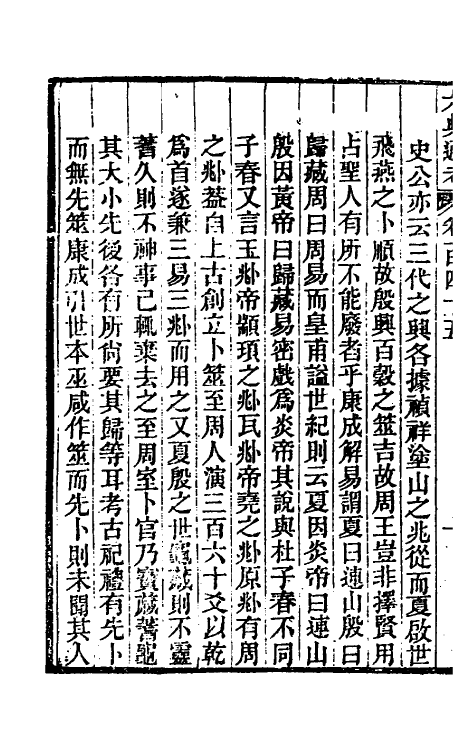 史公亦云三代之興各據禎祥塗山之兆從而夏啟世
飛燕之卜順故殷興百穀之筮吉故周王豈非擇賢用
占聖人有所不能廢者乎康成解易謂夏曰連山殷曰
歸藏周曰周易而皇甫謐世紀則云夏因炎帝曰連山
殷因黃帝曰歸藏易宓戲為炎帝其說與杜子春不同
子春又言玉兆帝顓頊之兆瓦兆帝堯之兆原兆有周
之兆葢自上古創立卜筮至周人演三百六十爻以乾
為首遂兼三易三兆而用之又夏殷之世龜藏則不靈
蓍久則不神事已輒棄去之至周室卜官乃寶藏蓍龜
其大小先後各有所尚要其歸等耳考古祀禮有先卜
而無先筮康成引世本巫咸作筮而先卜則未聞其人